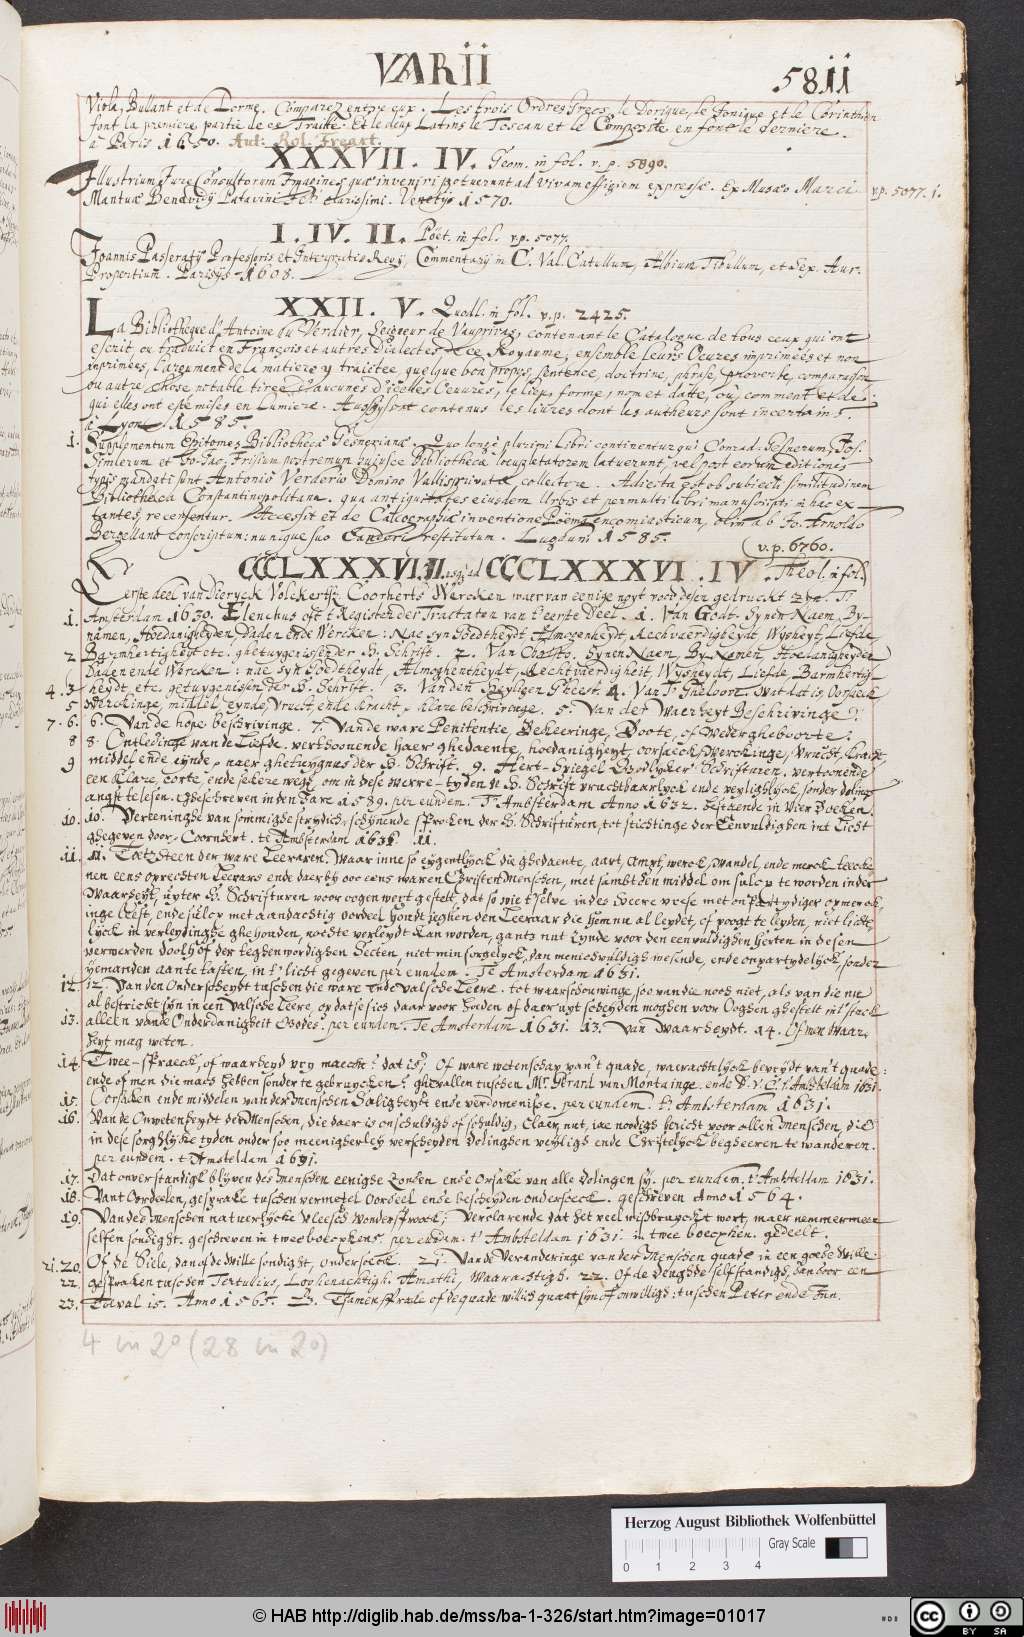 VARII
5811
Viola, Bullant et de Lorme. Comparez entre eux. Les trois Ordres Grecs, le Dorique, le Ionique et le Corinthien
font la premiere partie de ce Traitté. Et les deux Latins le Toscan et le Composite en font le derniere.
a Paris 1650. Aut: Rol. Freart.
XXXVII. IV. Geom. in fol. v. p. 5890.
Illustrium Jureconsultorum Imagines quae inveniri potuerunt ad vivam effigiem expressae. Ex Musaeo Marci
v.p. 5077. 1.
Mantuae Benavidij Patavini clarissimi. Venetijs 1570.
I. IV. II. Poet. in fol. v.p. 5077.
Joannis Passeratij Professoris et Interpretis Regij, Commentarij in C. Val. Catullum, Albium Tibullum, et Sex. Aur.
Propertium. Parisijs 1608.
XXII. V. Quodl. in fol. v.p. 2425.
La Bibliotheque d'Antoine du Verdier, Seigneur de Vauprivas, contenant le Catalogue de tous ceux qui ont
escrit, ou traduict en François et autres Dialectes de ce Royaume, ensemble leurs Oeuvres imprimées et non
imprimées, l'argument de la matiere y traictée, quelque bon propos, sentence, doctrine, phrase, proverbe, comparaison
ou autre chose notable tirée d'aucunes d'icelles Oeuvres, le lieu, forme, nom et datte, où, comment et de
qui elles ont esté mises en Lumiere. Aussy sont contenus les livres dont les autheurs sont incertains.
à Lyon 1585.
1. Supplementum Epitomes Bibliothecae Gesnerianae. Quo longè plurimi Libri continentur qui Conrad. Gesnerum, Jos.
Simlerum et Jo. Jac. Frisium postremum hujusce Bibliothecae locupletatorem latuerunt, vel post eorum editiones
typis mandati sunt Antonio Verderio Domino Vallisprivatae collectore. Adiecta est ob subiecti similitudinem
Bibliotheca Constantinopolitana. qua antiquitates eiusdem Urbis et permulti libri manuscripti in hac ex-
tantes, recensentur. Accessit et de Calcographiae inventione Poëma encomiasticum, olim à Jo. Arnoldo
Bergellano conscriptum: nunc que suo Candori restitutum. Lugduni 1585.
v.p. 6760.
CCCLXXXVI. II. usq; ad CCCLXXXVI. IV. Theol. in fol.
Eerste deel van Dieryck Volckertsz Coornherts Wercken waer van eenige noyt voor desen gedruckt zyn. T'
1. Amsterdam 1630. Elenchus oft t' Register der Tractaten van t' eerste Deel. 1. Van Godt. Synen Naem, By-
namen, Hoedanigheyden, Daden ende Wercken: Nae syn Goedtheydt Almogenheydt, Rechtvaerdigheydt, Wysheyt, Liefde,
2 Barmhertigheyt etc. ghetuygenisse der H. Schrift. 2. Van Christo. Synen Naem, By-Namen, Hoedanigheyden
Daden ende Wercken: nae syn Goedtheydt, Almoghentheydt, Rechtvaerdigheit, Wysheydt, Liefde, Barmhertig-
4. 3 heydt, etc. getuygenissen der H. Schrift. 3. Van den Heyligen Gheest. 4. Van 't Gheloove. Wat dat is, Oorsaeck
5 Werckinge, middel, eynde, Vrucht, ende kracht, klare beschrivinge. 5. Van der Waerheyt Beschrivinge
7. 6. 6. Van de hope beschrivinge. 7. Van de ware Penitentie, Bekeeringe, Boote, of Wedergheboorte.
8 8. Ontledinge van de Liefde. verthoonende haer ghedaente, hoedanigheyt, oorsaeck, werckinge, Vrucht, kracht,
9 middel ende eynde, naer ghetuygnis der H. Schrift. 9. Hert-Spiegel Godlycker Schrifturen, vertoonende
een klare, corte, ende sekere wegh, om in dese werre-tyden de H. Schrift vruchtbaarlyck ende veylighlyck, sonder dolings
angst te lesen. Gheschreven inden Jare 1589. per eundem. T' Ambsterdam Anno 1632. bestaende in Vier Boeken.
10. 10. Vereeninghe van sommighe strydich, schynende sproken der H. Schrifturen, tot stichtinge der Eenvuldighen int Licht
ghegeven door Coornhert. te Ambsterdam 1631. 11.
11. 11. Toetzsteen der ware Leeraren. Waar inne soo eygentlyck die ghedaente, aart, ampt, werck, wandel, ende merck teecke-
nen eens oprechten Leeraers ende daerby oock eens waren Christen Menschen, met sambt den middel om sulcx te worden inder
Waarheyt, uyter H. Schrifturen voor ooghen wort gestelt, dat soo wie t' selve in des Heere vreese met onpartydiger opmerck
inge leest, ende sielo met aandachtig oordeel houdt jeghen den Leeraar die hem nu al leydet, of pooght te leyden, niet licht
lyck in verleydinghe ghehouden, nochte verleydt kan worden, gantz nut zynde voor den eenvuldighen herten in desen
verwerden doolhof der teghenwordighen Secten, niet min sorgelyck, dan menichvuldigh wesende, ende onpartydelyck, sonder
yemanden aan te tasten, in t' licht gegeven per eundem. Te Amsterdam 1631.
12. 12. Van den Onderscheydt tusschen die ware ende valsche Leere. tot waarschouwinge, soo van die noch niet, als van die nu
al bestrickt syn in een valsche Leere, op dat se sich daar voor hoeden of daer uyt scheyden moghen voor Ooghen ghestelt in 't stuck
13. alleen van de Onderdanigheit Godes. per eundem. Te Amsterdam 1631. 13. Van Waarheydt. 14. Of men Waar-
heyt mag weten.
14. Twee-spraeck, of waarheyd vry maeckt? dat is, Of ware wetenschap van 't quade, warachtelyck bevrydt van 't quade:
ende of men die mach hebben sonder te gebruycken? ghevallen tusschen Mr. Gerard van Montainge. ende D. V. C. t' Amsteldam 1631.
15. Oorsaken ende middelen van der Menschen Saligheyt ende verdomenisse. per eundem. t' Ambsterdam 1631.
16. Van de Onwetenheydt der Menschen, die daer is onschuldigh of schuldig, Claer, nut, iae nodigh bericht voor allen Menschen, die
in dese sorghlycke tyden onder soo meenigherley verscheyden dolinghen veyligh ende Christelyck begheeren te wanderen.
per eundem. t' Amsteldam 1631.
17. Dat onverstandigh blyven des Menschen eenighe zonden ende Orsake van alle Dolingen sy. per eundem. t' Amsteldam 1631.
18. Vant Oordeelen, gesprake tusschen vermetel Oordeel ende bescheyden ondersoeck. geschreven Anno 1564.
19. Van des Menschen natuerlycke Vleesch Wondersproock; Verclarende dat het veel misbruyckt wort, maer nemmermeer
selfen sondight. geschreven in twee boeckens. per eundem. t' Ambsteldam 1631. in twee boecxken. gedeelt.
21. 20. Of de Siele, dan of de Wille sondight, ondersoeck. 21. Van de Veranderinge van der Menschen quade in een goede Wille.
22. gespraken tusschen Tertulius, Loopenachtigh. Amathi, Waarachtigh. 22. Of de deughde self standigh, dan door een
23. Toeval is. Anno 1565. 23. Tsamensprake of de quade willigh quaat syn of onwilligh: tusschen Peter ende Jan.
4 in 2° (28 in 2°)
Herzog August Bibliothek Wolfenbüttel
Gray Scale
0 1 2 3 4
© HAB http://diglib.hab.de/mss/ba-1-326/start.htm?image=01017
CC BY SA